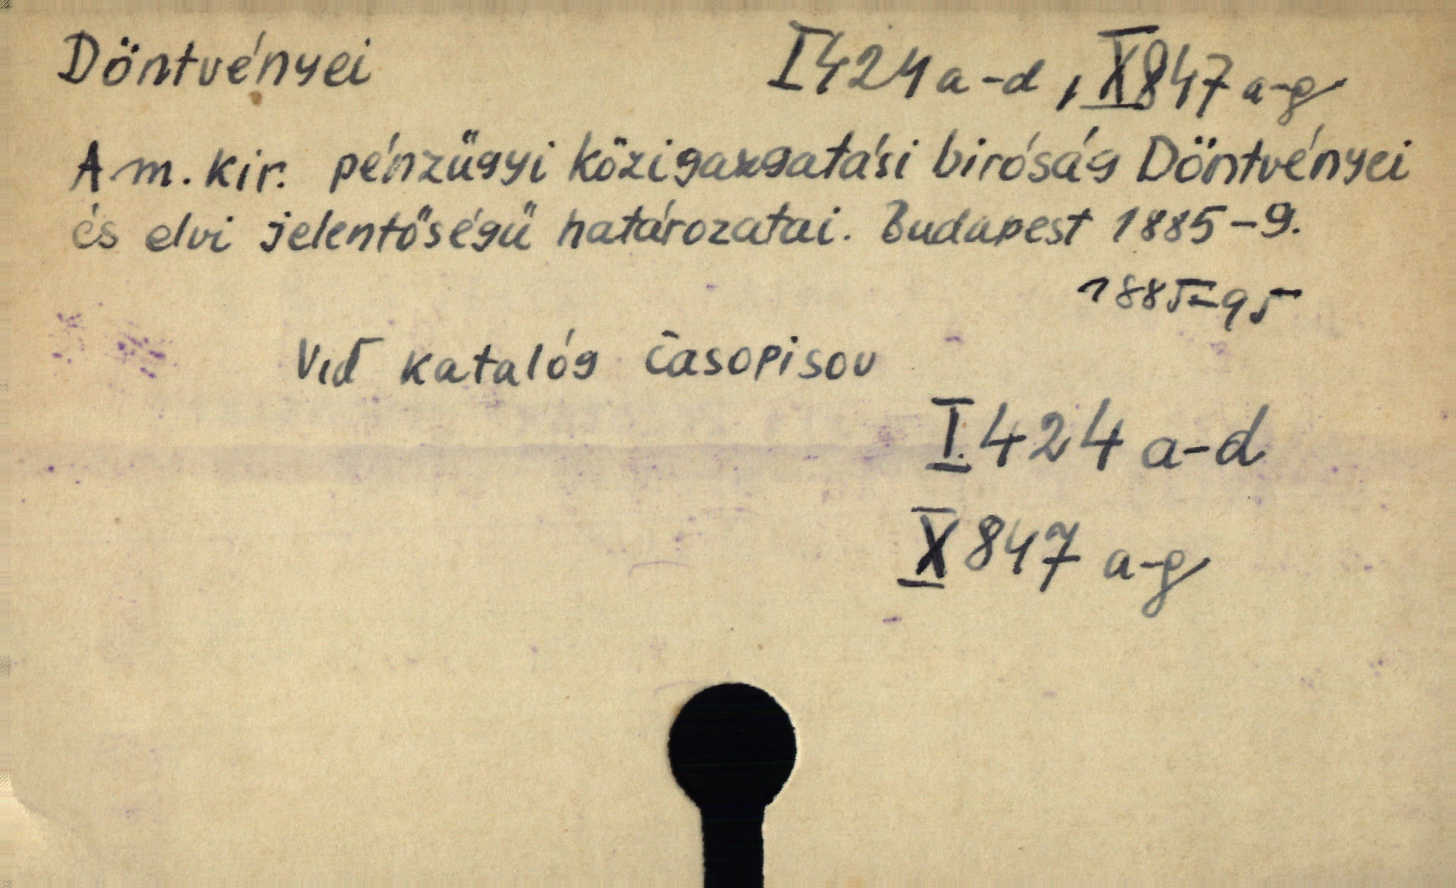 Döntvényei I 424 a-d, X 847 a-g
A m. kir. pénzügyi közigazgatási biróság Döntvényei
és elvi jelentőségű határozatai. Budapest 1885-9.
1885-95
Viď katalóg časopisov
I. 424 a-d
X 847 a-g